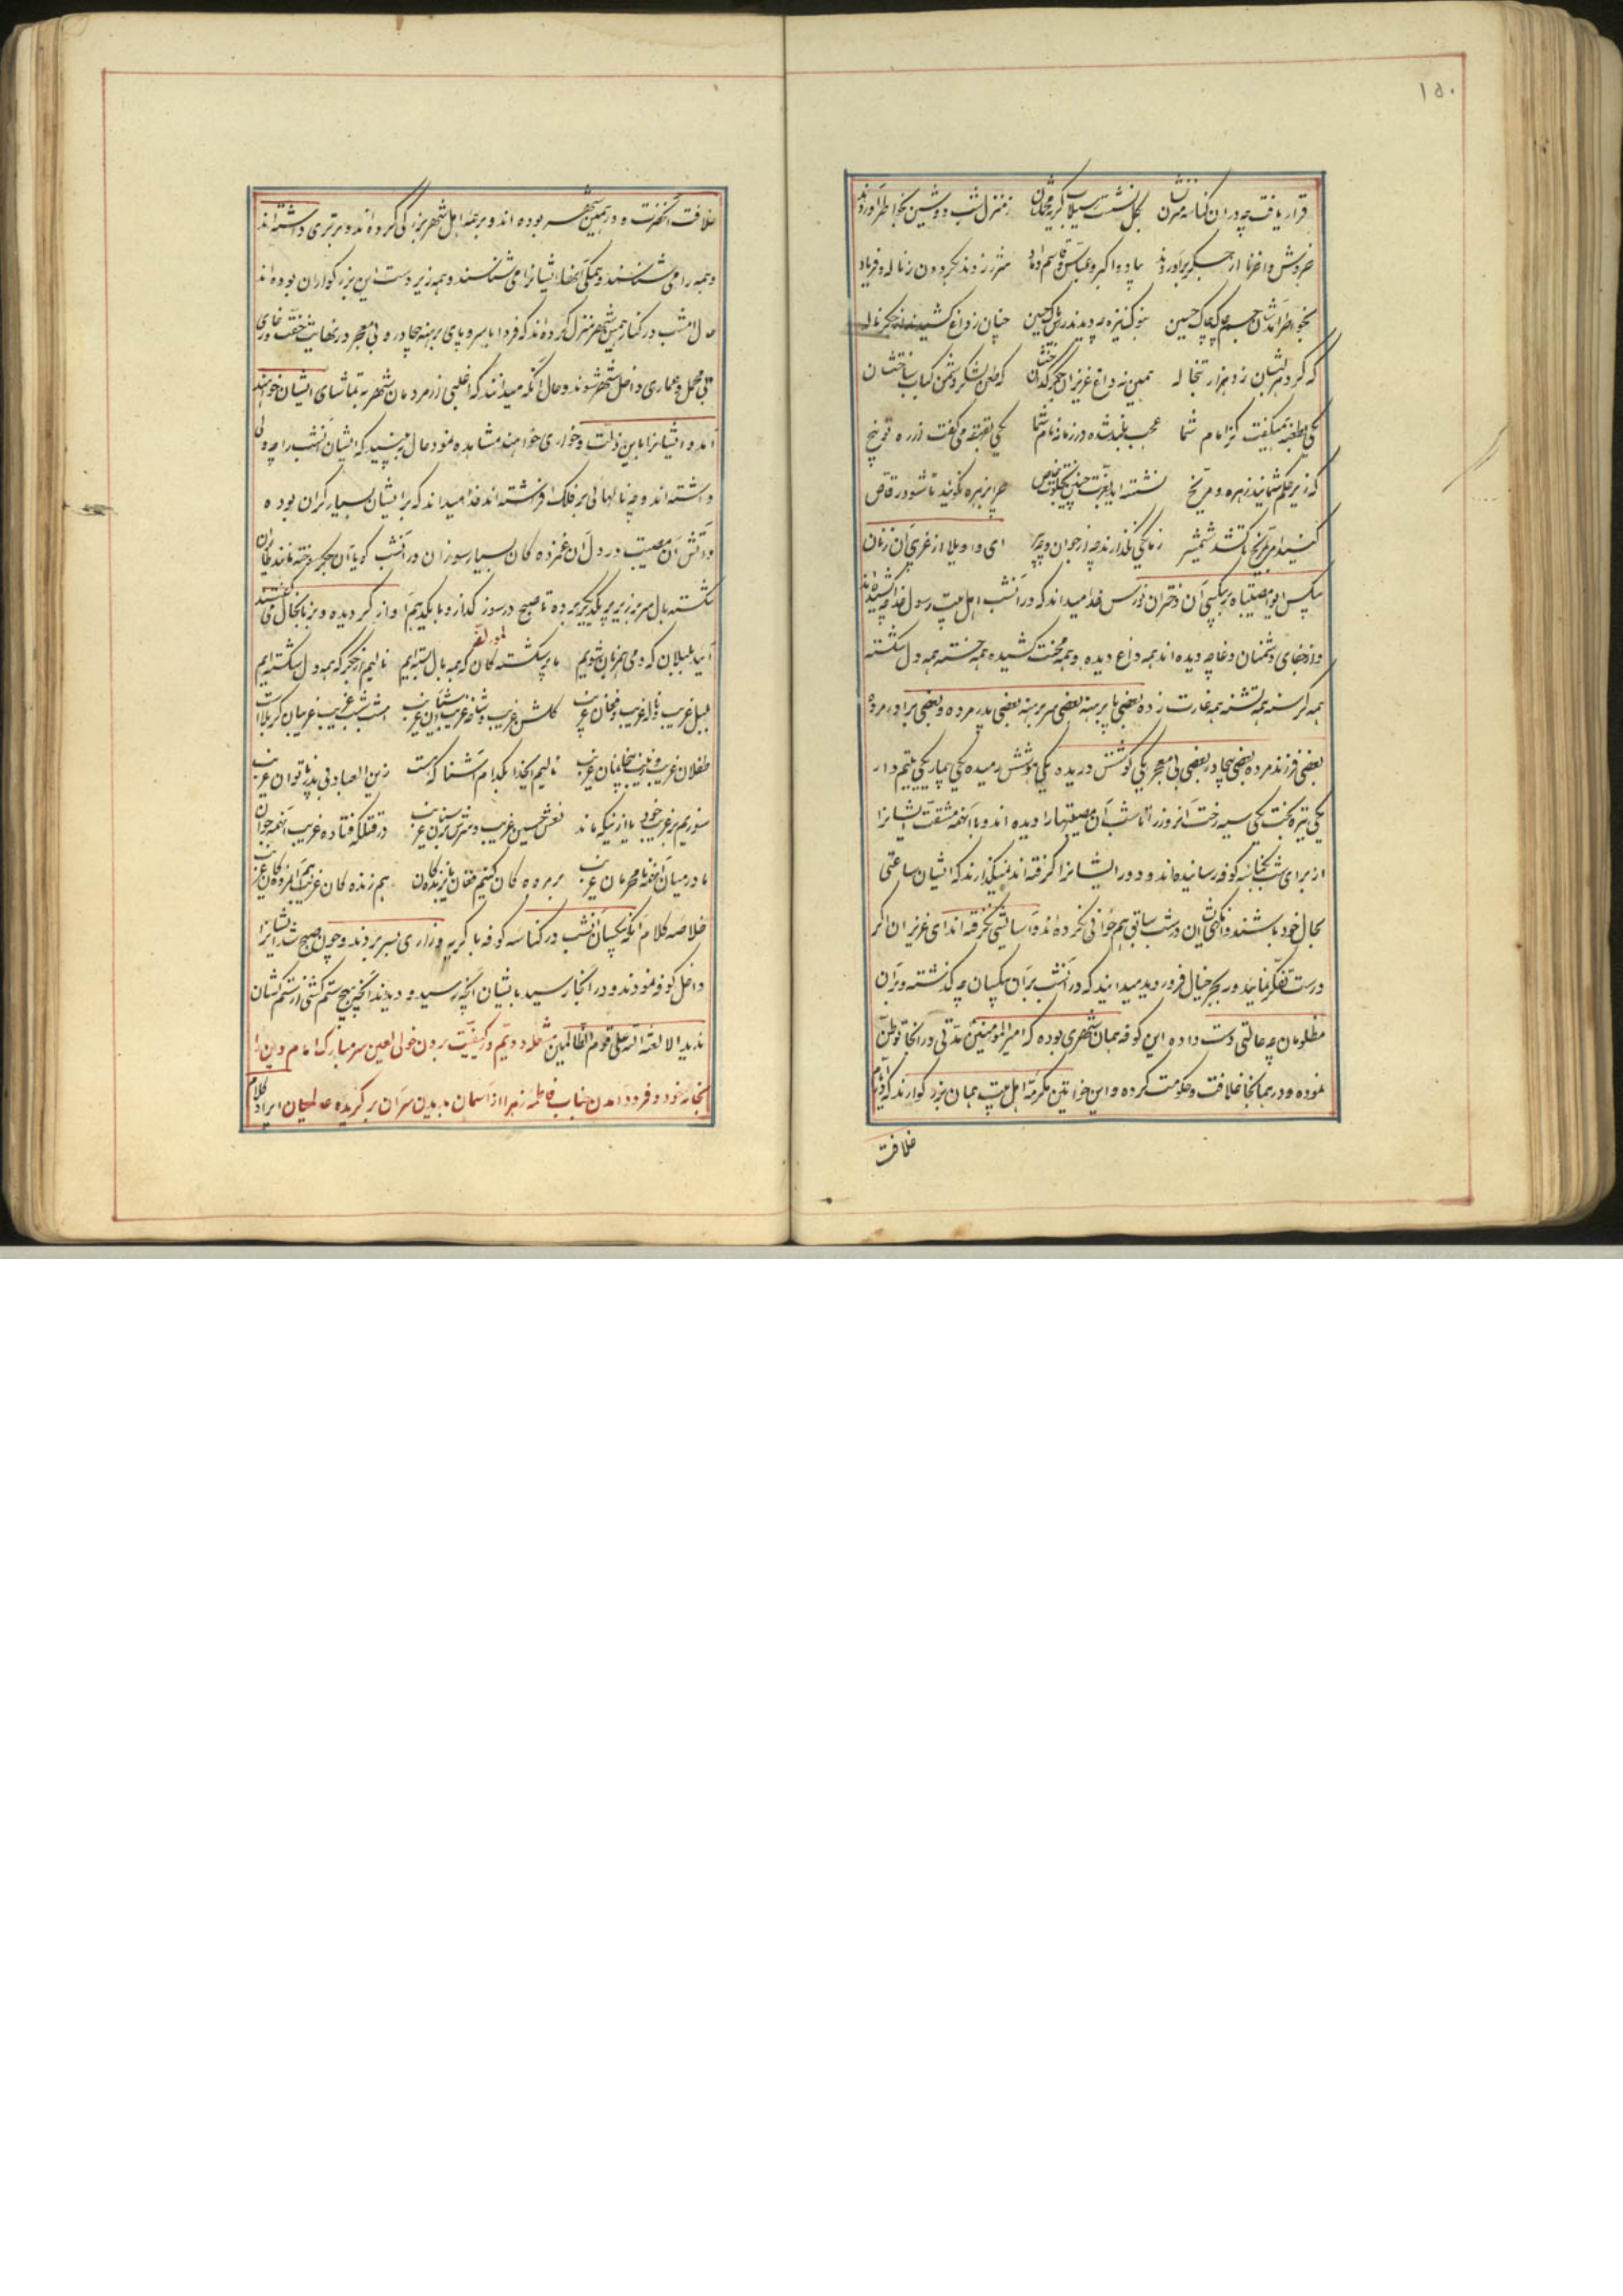 ۱۵۰
قرار یافت چه در ان کناسه منزلشان بگل نشست ز سیلاب کریه محملشان ز منزل شب دوشین بخاطر اوردند
خروش واحزنا از جگر براوردند بیاد اکبر و عباس و قاسم داماد شرر زدند بکردون ز ناله و فریاد
بخاطر امدشان جسم چاک چاک حسین بنوک نیزه چو دیدند راس پاک حسین چنان ز داغ کشیدند از جکر ناله
که کرد بر لبشان زد هزار تبخاله همین نه داغ عزیزان جکر کدازد که طعن لشکر دشمن کباب ساختشان
یکی بطعنه همیکفت کز امام شما عجب بلند شده در زمانه نام شما یکی بقهقهه می کفت از ره توبیخ
که زیر حکم شمایند زهره و مریخ نشسته اید بغربت چنین بخلوت خاص چرا بزهره نکویند تا شود رقاص
کنید امر بمریخ تا کشد شمشیر زما یکی نکذارند چه از جوان و چه پیر ای واویلا از غریبی ان زنان
بیکس ایوا مصیبتاه بر بیکسی آن دختران نورس خدا میداند که در آنشب اهل بیت رسول خدا چه کشیده اند
و از جفای دشمنان دغا چه دیده اند همه داغ دیده و همه محنت کشیده همه خسته همه دل شکسته
همه کرسنه همه تشنه همه غارت زده بعضی پا برهنه بعضی سر برهنه بعضی پدر مرده و بعضی برادر مرده
بعضی فرزند مرده بعضی بیچادر بعضی بی معجر یکی کوشش دریده یکی هوشش رمیده یکی بیمار یکی یتیم دار
یکی تیره بخت یکی سیه رخت آنروز را تا شب آن مصیبتها را دیده اند و با آنهمه مشقت ایشانرا
از برای شب بکناسه کوفه رسانیده اند و دور ایشانرا کرفته اند نمیکذارند که ایشان ساعتی
بحال خود باشند و انکهی ایشان در شب سابق هم خوابی نکرده اند و آسایشی نکرفته اند ای عزیزان اکر
درست تفکر نمائید و در بحر خیال فرو روید میدانید که در آنشب بر آن بیکسان چه کذشته و بر آن
مظلومان چه حالتی دست داده این کوفه همان شهری بوده که امیرالمؤمنین مدتی در انجا توطن
نموده و در همانجا خلافت و حکومت کرده و این خواتین مکرمه اهل بیت همان بزرکوارند که در ایام
خلافت
خلافت آنحضرت در همین شهر بوده اند و بر همه اهل شهر بزرکی کرده اند و برتری داشته اند
و همه را می شناسند و همکی آنها ایشانرا می شناسند و همه زیر دست این بزرکواران بوده اند
حال امشب در کنار همین شهر منزل کرده اند که فردا با سر و پای برهنه بی چادر و بی معجر در نهایت خفت و خاری
بی محمل و عماری داخل شهر شوند و حال آنکه میدانند که اغلبی از مردمان شهر به تماشای ایشان خواهند
آمد و ایشانرا باین ذلت و خواری خواهند مشاهده نمود حال ببینید که ایشان آنشب را چه دلی
داشته اند و چه نالهائی بر فلک افراشته اند خدا میداند که بر ایشان بسیار کران بوده
و آتش آن مصیبت در دل آن غمزده کان بسیار سوزان در آنشب کویا آن جکر سوخته مانند مرغان
شکسته بال سر بزیر پر یکدیکر برده تا صبح در سوز کداز و با یکدیکر هم آواز کردیده و بزبانحال می کفتند
لمؤلفه
آئید بلبلان که دمی همزبان شویم ما پر شکسته کان که همه بال بسته ایم نالیم از جکر که همه دل شکسته ایم
بلبل غریب و ناله غریب و فغان غریب کلشن غریب و شاخه غریب آشیان غریب امشب شب غریب غریبان کربلاست
طفلان غریب و زینب بیخانمان غریب نالیم ایخدا بکدام آشنا که هست زین العباد بی پدر ناتوان غریب
سوزیم بر غریب خود یا از اینکه ماند نعش حسین غریب و سرش بر سنان غریب در قتلکه فتاده غریب آنهمه جوان
ما در میان اینهمه نامحرمان غریب بر مرده کان کنیم فغان یا بزنده کان هم زنده کان غریب هم آن مرده کان غریب
خلاصه کلام آنکه بیکسان آنشب در کناسه کوفه با کریه و زاری بسر بردند و چون صبح شد ایشانرا
داخل کوفه نمودند و در آنجا رسید بایشان آنچه رسید و دیدند آنچه هیچ ستم کشی از ستم کشان
ندید الا لعنة الله علی قوم الظالمین شعله دویم در کیفیت بردن خولی لعین سر مبارک امام دین را
بخانه خود و فرود امدن جناب فاطمه زهرا از اسمان بدیدن سر آن بر کزیده عالمیان ایراد کلام